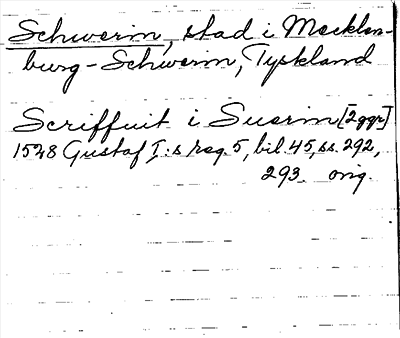 Schwerin, stad i Mecklen-
burg-Schwerin, Tyskland
Scriffuit i Suerin [2ggr]
1528 Gustaf I:s reg. 5, bil. 45, ss. 292,
293. orig.